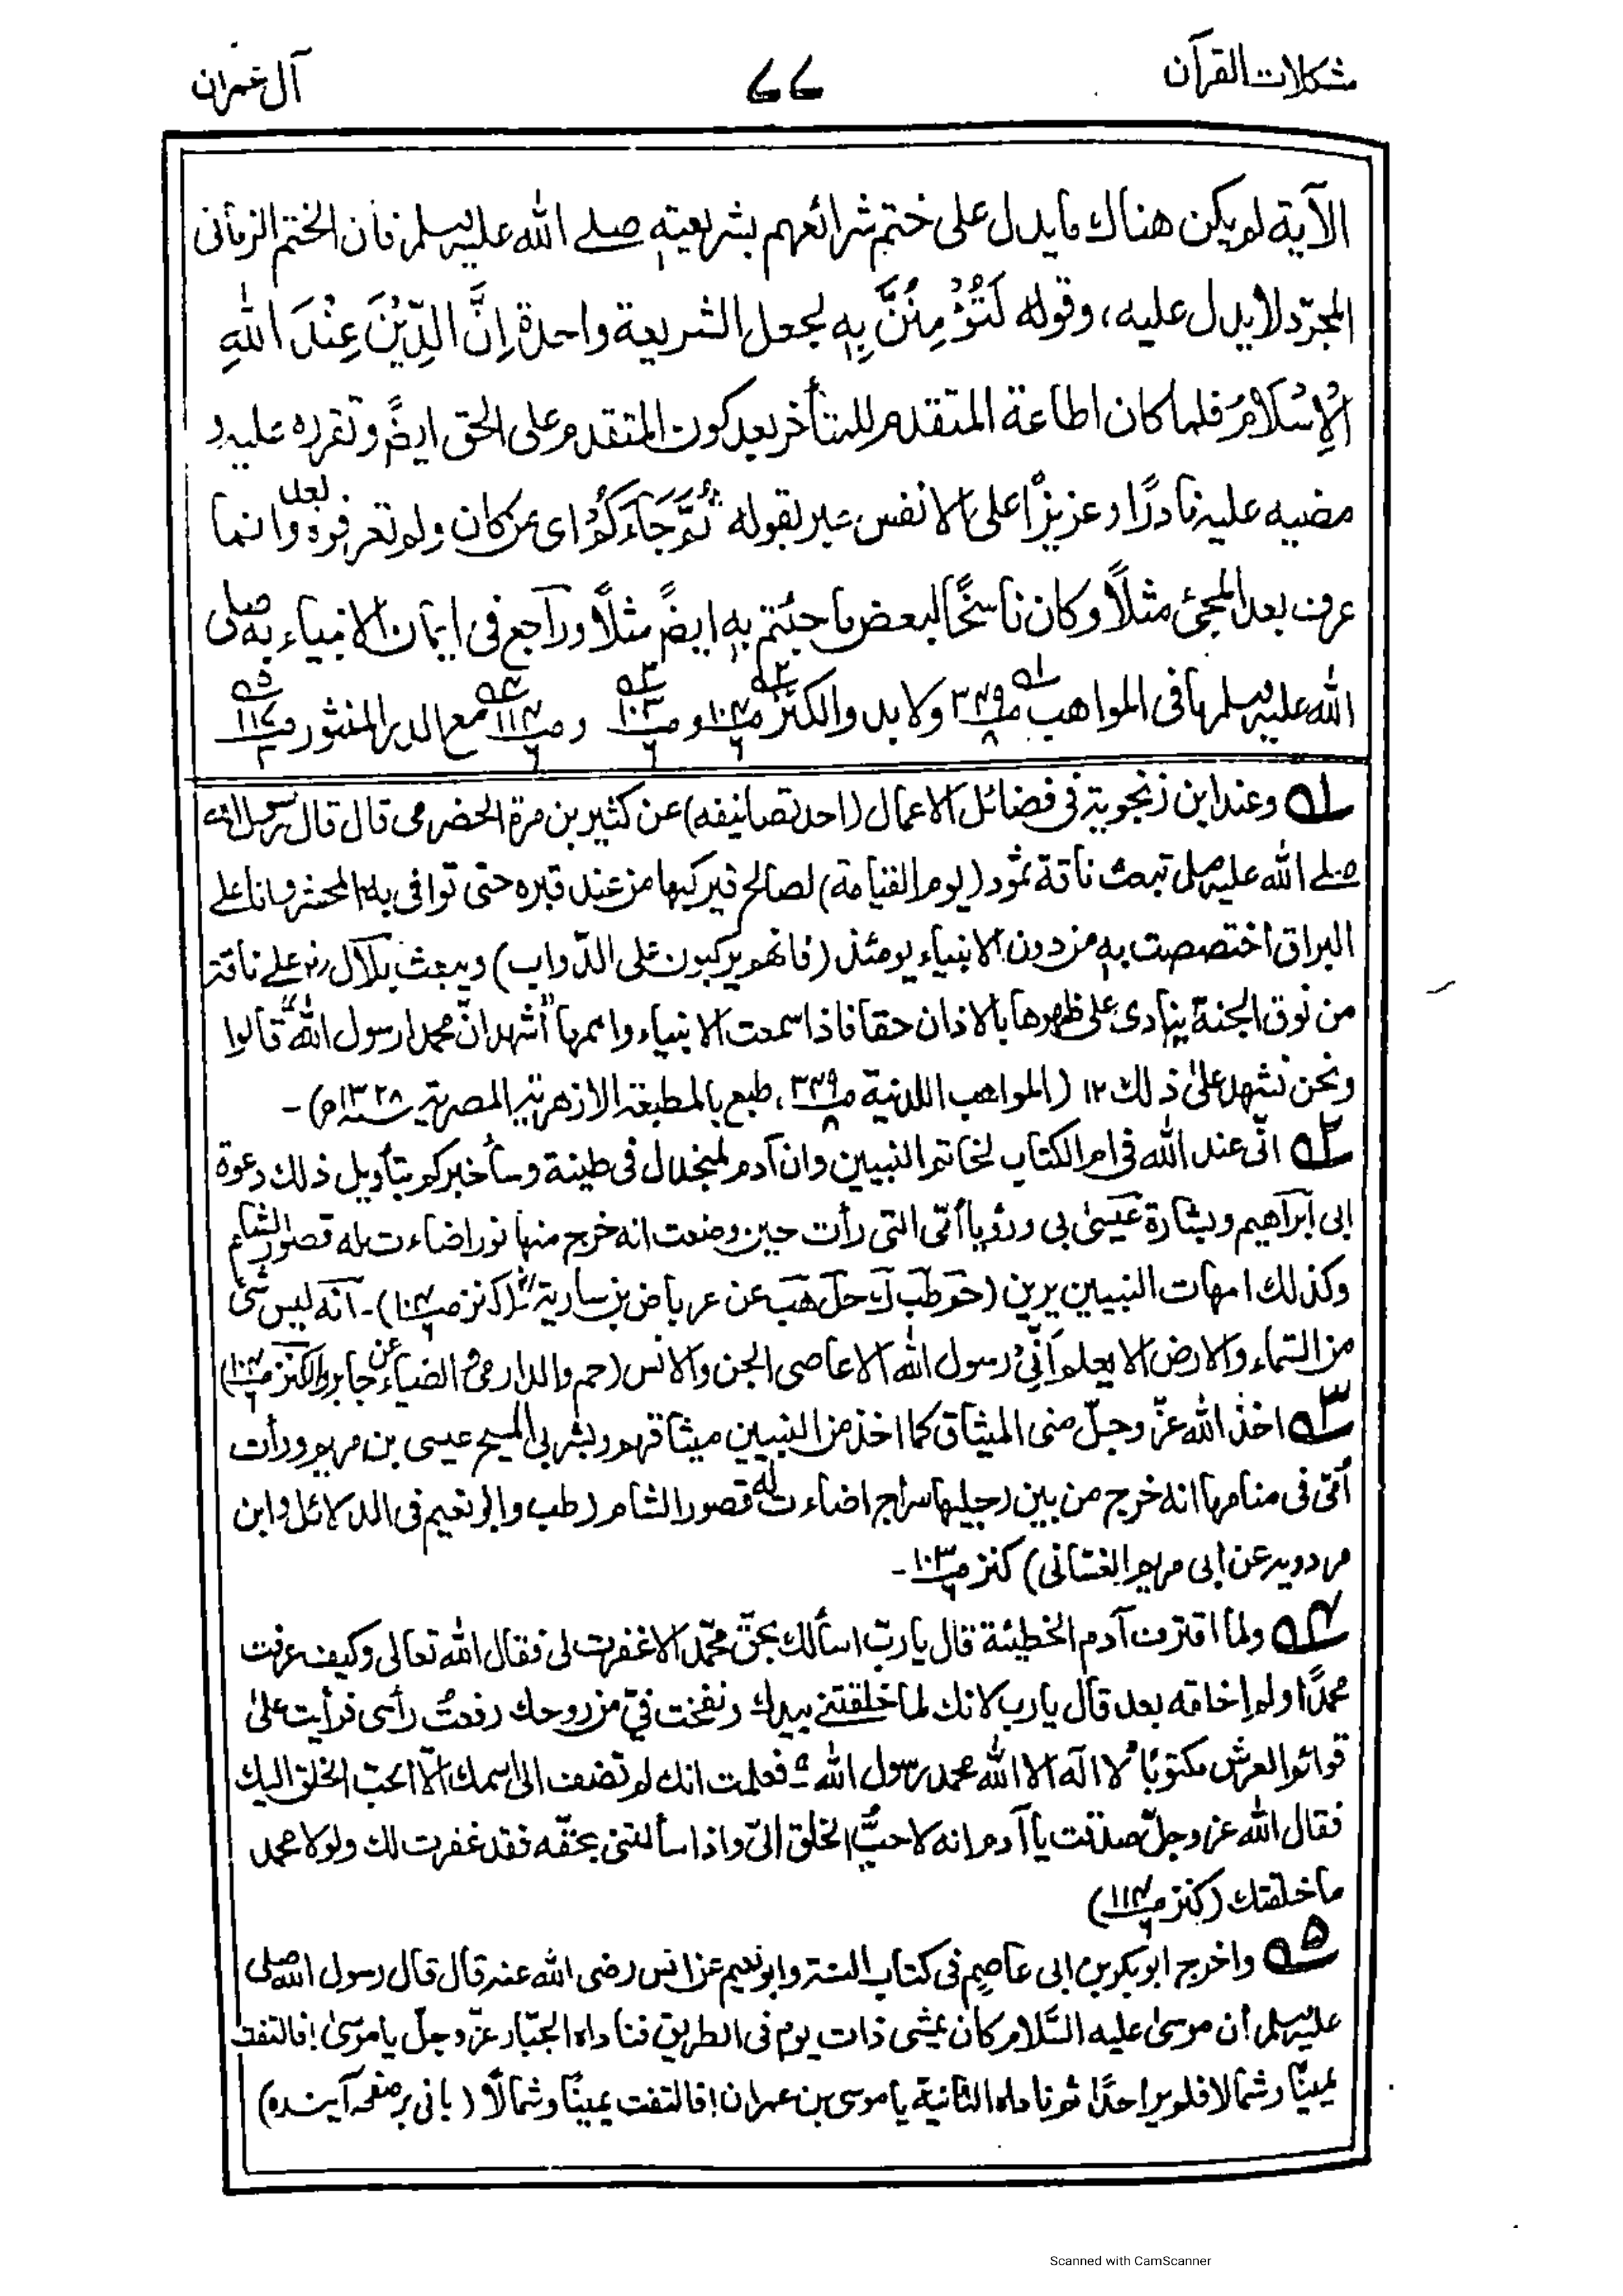 مشكلات القرآن
٧٧
آل عمران
الآية لم يكن هناك ما يدل على ختم شرائعهم بشريعته صلے الله عليه وسلم فان الختم الزمانى
المجرّد لا يدل عليه، وقوله لَتُؤْمِنُنَّ بِهٖ لجعل الشريعة واحدة اِنَّ الدِّيْنَ عِنْدَ اللهِ
الْاِسْلَامُ فلما كان اطاعة المتقدم للمتأخر بعد كون المتقدم على الحق ايضًا وتقرره عليه و
مضيه عليه نادرًا وعزيزًا على الانفس عبر بقوله ثُمَّ جَآءَكُمْ اى من كان ولم تعرفوه بعد وانما
عرف بعد المجئ مثلاً وكان ناسخًا لبعض ما جئتم به ايضًا مثلاً وراجع فى ايمان الانبياء به صلى
الله عليه وسلم ما فى المواهب ص٣٤٩ ٨ ٥١ ولا بد والكنز ص١٠٤ ٦ ٥٢ و ص١٠٣ ٦ ٥٣ و ص١١٤ ٦ ٥٤ مع الدر المنثور ص١١٧ ٣ ٥٥
٥١ وعند ابن زنجوية فى فضائل الاعمال (احد تصانيفه) عن كثير بن مرة الحضرمى قال قال رسول الله
صلے الله عليه وسلم تبعث ناقة ثمود (يوم القيامة) لصالح فيركبها من عند قبره حتى توافى به المحشر وانا على
البراق اختصصت به من دون الانبياء يومئذ (فانهم يركبون على الدّواب) ويبعث بلال رض على ناقة
من نوق الجنة ينادى على ظهرها بالاذان حقا فاذا سمعت الانبياء واممها "اشهد انّ محمدا رسول الله" قالوا
ونحن نشهد علىٰ ذلك ١٢ (المواهب اللدنية ص٣٤٩ ٨، طبع بالمطبعة الازهرية المصرية سنة ١٣٢٨م) -
٥٢ انّى عند الله فى ام الكتاب لخاتم النبيين وان آدم لمنجدل فى طينة وسأخبركم بتأويل ذلك دعوة
ابى ابراهيم وبشارة عيسىٰ بى ورؤيا أمّى التى رأت حين وضعت انه خرج منها نور اضاءت له قصور الشام
وكذلك امهات النبيين يرين (حم طب ك حل هب عن عرباض بن سارية) كنز ص١٠٤ ٦) - انه ليس شئ
من السماء والارض الا يعلم أنّى رسول الله الا عاصى الجن والانس (حم والدارمى والضياء عن جابر والكنز ص١٠٤ ٦)
٥٣ اخذ الله عزّ وجلّ منى الميثاق كما اخذ من النبيين ميثاقهم وبشر بى المسيح عيسى بن مريم ورأت
أمّى فى منامها انه خرج من بين رجليها سراج اضاءت له قصور الشام (طب وابو نعيم فى الدلائل وابن
مردويه عن ابى مريم الغسّانى) كنز ص١٠٣ ٦ -
٥٤ ولما اقترف آدم الخطيئة قال يا ربّ اسألك بحقّ محمّد الا غفرت لى فقال الله تعالى وكيف عرفت
محمدًا ولم اخلقه بعد قال يا رب لانك لما خلقتنى بيدك ونفخت فىّ من روحك رفعتُ رأسى فرأيت علىٰ
قوائم العرش مكتوبًا "لا اله الا الله محمد رسول الله" فعلمت انك لم تضف الى اسمك الّا احبّ الخلق اليك
فقال الله عز وجلّ صدقت يا آدم انه لاحبُّ الخلق الىّ واذا سألتنى بحقّه فقد غفرت لك ولولا محمد
ما خلقتك (كنز ص١١٤ ٦)
٥٥ واخرج ابو بكر بن ابى عاصم فى كتاب السنة وابو نعيم عن انس رضى الله عنه قال قال رسول الله صلى
عليه وسلم أن موسىٰ عليه السّلام كان يمشى ذات يوم فى الطريق فناداه الجبّار عزّ وجلّ يا موسىٰ! فالتفت
يمينًا وشمالا فلم ير احدًا ثم ناداه الثانية يا موسى بن عمران! فالتفت يمينًا وشمالًا (باقى برصفحہ آيندہ)
Scanned with CamScanner